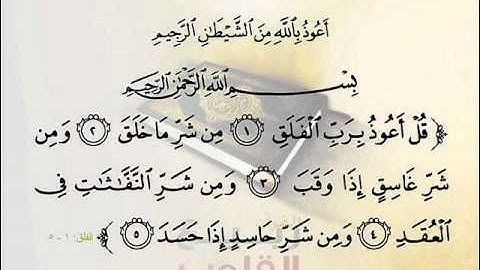 أَعُوذُ بِٱللَّهِ مِنَ ٱلشَّيْطَانِ ٱلرَّجِيمِ
بِسْمِ ٱللَّهِ ٱلرَّحْمَٰنِ ٱلرَّحِيمِ
﴿ قُلْ أَعُوذُ بِرَبِّ ٱلْفَلَقِ ١ مِن شَرِّ مَا خَلَقَ ٢ وَمِن
شَرِّ غَاسِقٍ إِذَا وَقَبَ ٣ وَمِن شَرِّ ٱلنَّفَّٰثَٰتِ فِى
ٱلْعُقَدِ ٤ وَمِن شَرِّ حَاسِدٍ إِذَا حَسَدَ ٥ ﴾ الفلق: ١ - ٥
القلوب